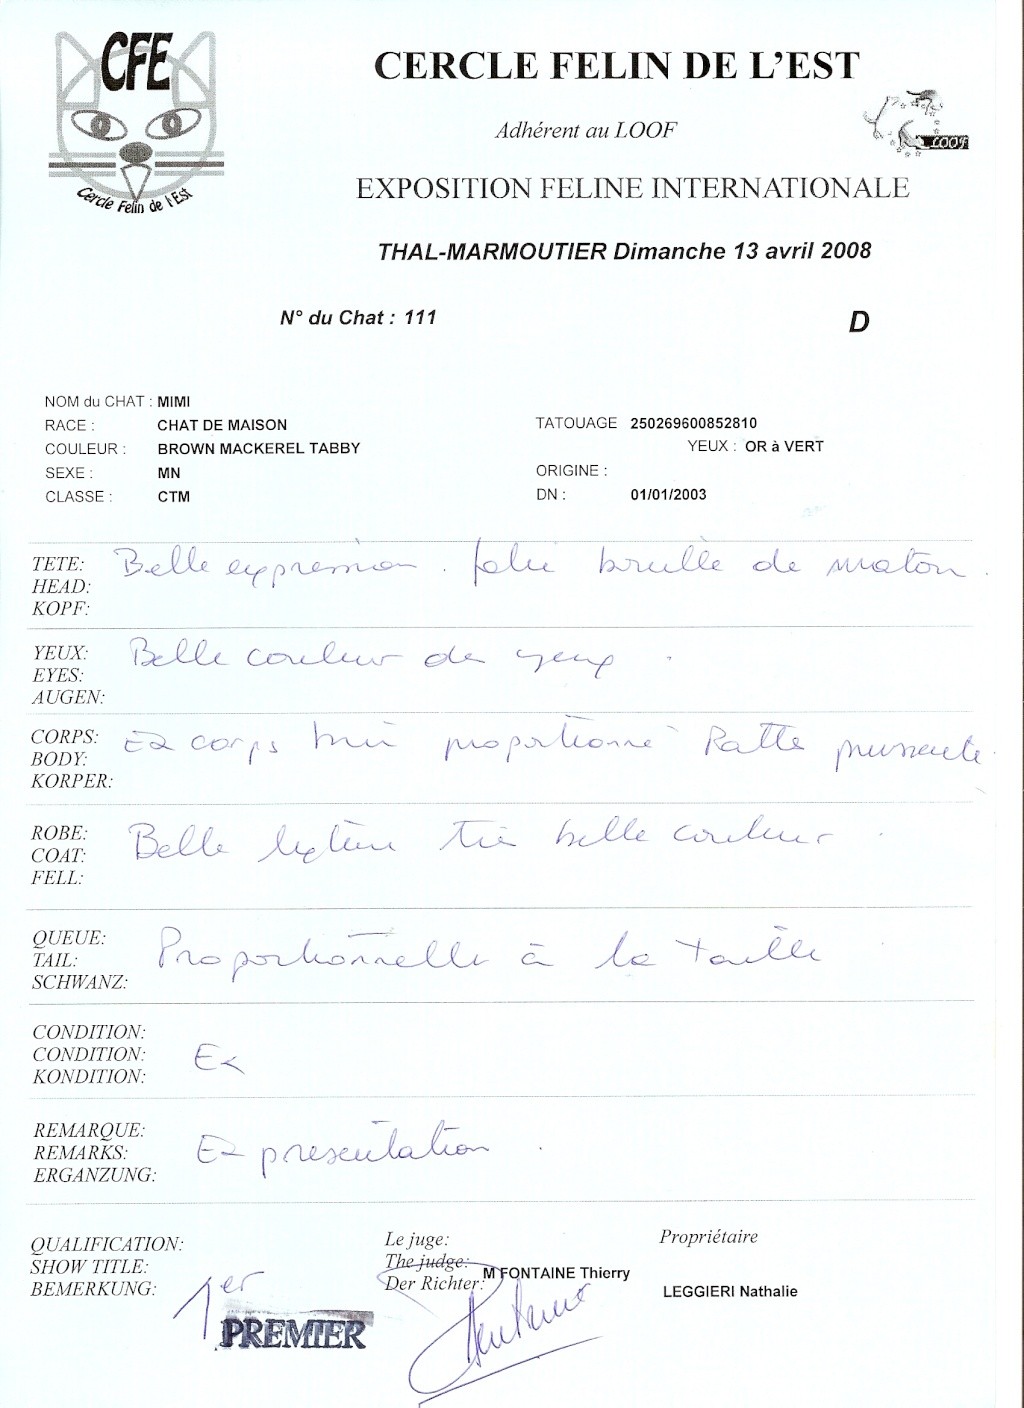 CFE
Cercle Felin de l'Est
CERCLE FELIN DE L'EST
Adhérent au LOOF
LOOF
EXPOSITION FELINE INTERNATIONALE
THAL-MARMOUTIER Dimanche 13 avril 2008
N° du Chat : 111
D
NOM du CHAT : MIMI
RACE : CHAT DE MAISON
TATOUAGE 250269600852810
COULEUR : BROWN MACKEREL TABBY
YEUX : OR à VERT
SEXE : MN
ORIGINE :
CLASSE : CTM
DN : 01/01/2003
TETE: Belle expression. Jolie bouille de maton.
HEAD:
KOPF:
YEUX: Belle couleur des yeux.
EYES:
AUGEN:
CORPS: Ex corps bien proportionné Patte puissante.
BODY:
KORPER:
ROBE: Belle texture très belle couleur.
COAT:
FELL:
QUEUE:
TAIL: Proportionnelle à la taille
SCHWANZ:
CONDITION:
CONDITION: Ex
KONDITION:
REMARQUE:
REMARKS: Ex presentation.
ERGANZUNG:
QUALIFICATION:
SHOW TITLE:
BEMERKUNG: 1er
PREMIER
Le juge:
The judge:
Der Richter: M FONTAINE Thierry
Propriétaire
LEGGIERI Nathalie